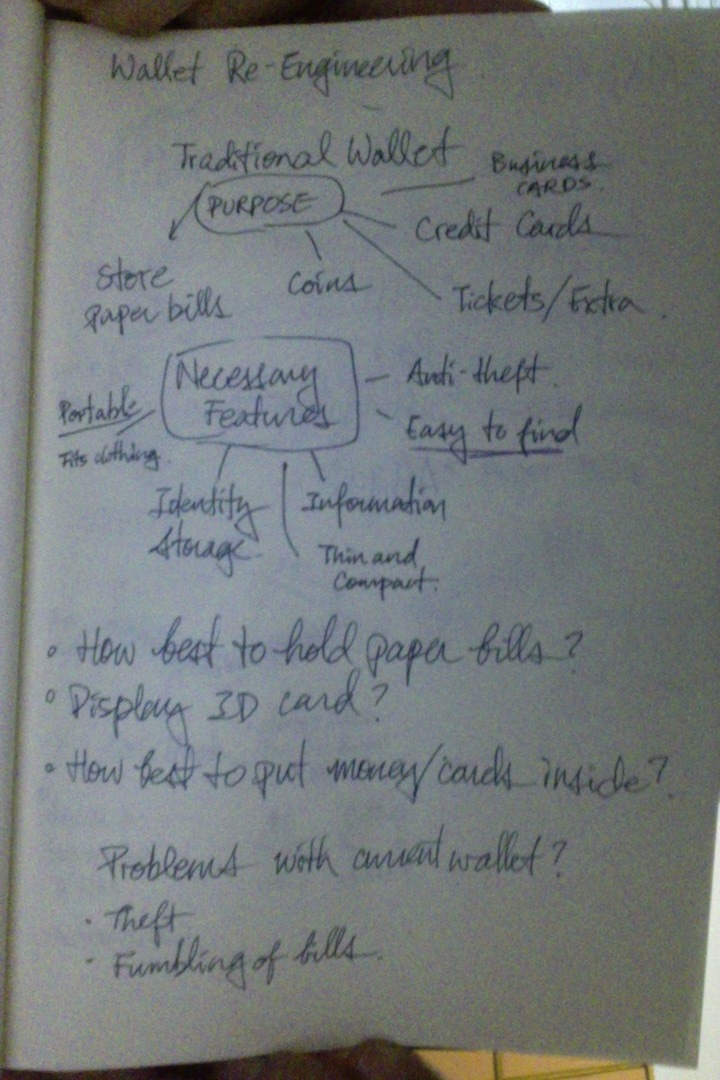 Wallet Re-Engineering
Traditional Wallet
PURPOSE
Business
CARDS.
Credit Cards
Store
paper bills
Coins
Tickets/Extra.
Necessary
Features
Anti-theft.
Easy to find
Portable
Fits clothing.
Identity
Storage
Information
Thin and
Compact.
How best to hold paper bills?
Display ID card?
How best to put money/cards inside?
Problems with current wallet?
Theft
Fumbling of bills.